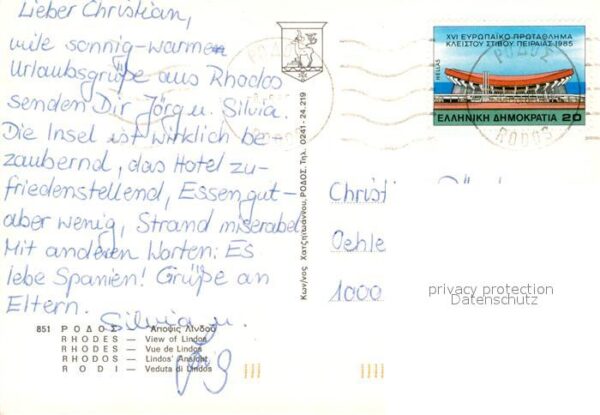 Lieber Christian,
viele sonnig-warmen
Urlaubsgrüße aus Rhodos
senden Dir Jörg u. Silvia.
Die Insel ist wirklich be-
zaubernd, das Hotel zu-
friedenstellend, Essen gut-
aber wenig, Strand miserabel
Mit anderen Worten: Es
lebe Spanien! Grüße an
Eltern.
Silvia u.
851 ΡΟΔΟΣ — Άποψις Λίνδου
RHODES — View of Lindos
RHODES — Vue de Lindos
RHODOS — Lindos' Ansicht
RODI — Veduta di Lindos
Κων/νος Χατζηϊωάννου, ΡΟΔΟΣ, Τηλ. 0241 - 24.219
XVI ΕΥΡΩΠΑΪΚΟ ΠΡΩΤΑΘΛΗΜΑ
ΚΛΕΙΣΤΟΥ ΣΤΙΒΟΥ ΠΕΙΡΑΙΑΣ 1985
HELLAS
ΕΛΛΗΝΙΚΗ ΔΗΜΟΚΡΑΤΙΑ 20
RODOS
Christi
Oehle
1000
privacy protection
Datenschutz